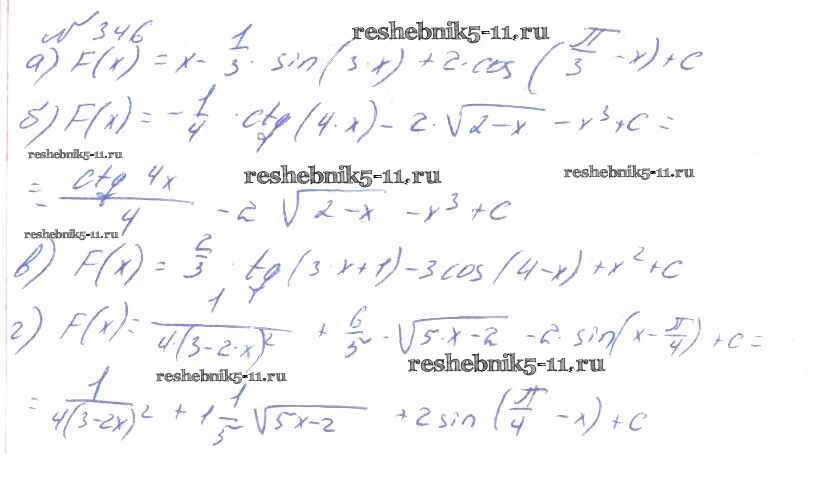 № 346 reshebnik5-11.ru
а) F(x) = x - 1/3 · sin(3·x) + 2·cos(π/3 - x) + C
б) F(x) = - 1/4 · ctg(4·x) - 2·√(2-x) - x³ + C =
reshebnik5-11.ru reshebnik5-11.ru reshebnik5-11.ru
= ctg 4x / 4 - 2 √(2-x) - x³ + C
reshebnik5-11.ru
в) F(x) = 2/3 · tg(3·x+1) - 3cos(4-x) + x² + C
г) F(x) = 1/(4·(3-2·x)²) + 6/5 · √(5·x-2) - 2·sin(x - π/4) + C =
reshebnik5-11.ru reshebnik5-11.ru
= 1/(4(3-2x)²) + 1 1/5 √(5x-2) + 2sin(π/4 - x) + C